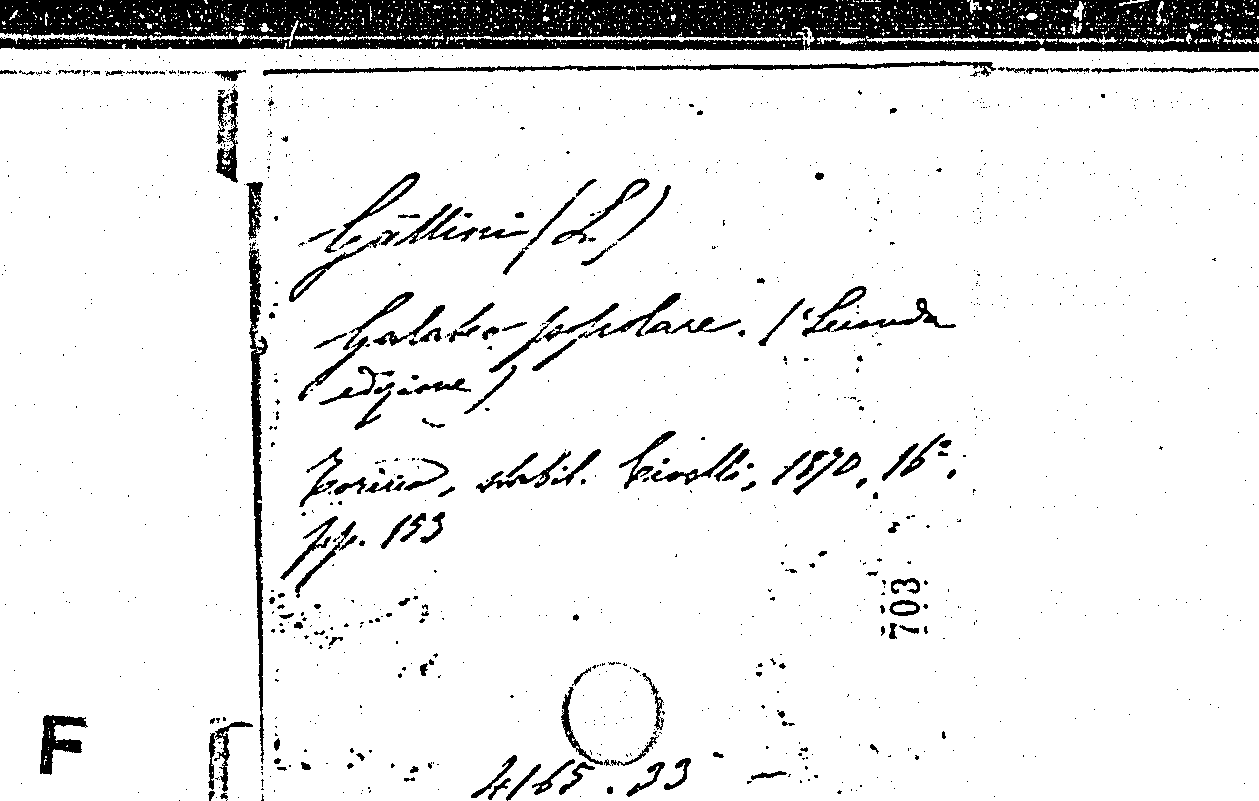 Gattini (L.)
Galateo popolare. (Seconda
edizione)
Torino, stabil. Civelli, 1870, 16º,
pp. 153
703
F
4165.33